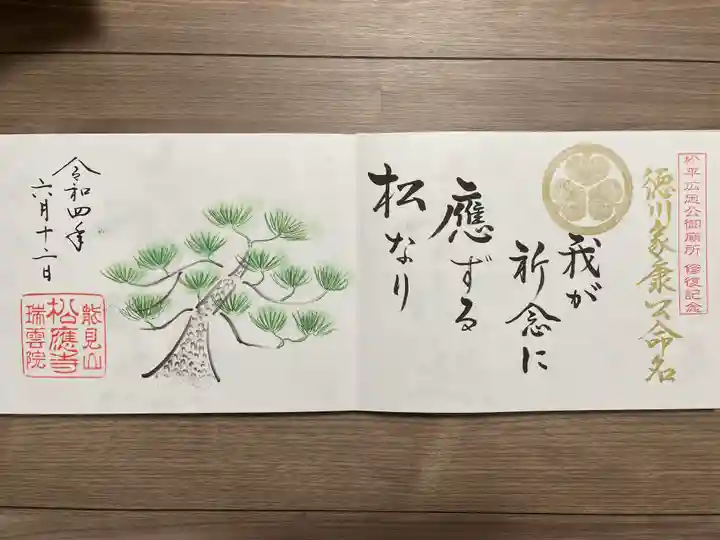 松平広忠公御廟所 修復記念
徳川家康公命名
我が
祈念に
應ずる
松なり
令和四年
六月十二日
能見山
松應寺
瑞雲院